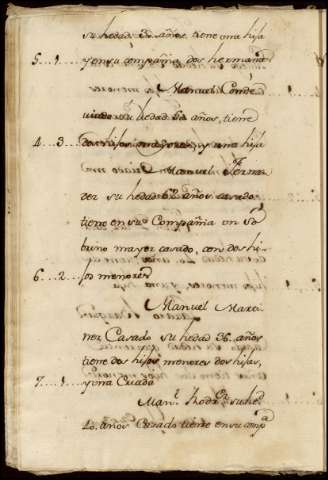 su hedad años tiene una hija
5....1.... y en su compañia dos herman
Manuel Conde
viudo su hedad 60 años, tiene
4...3. dos hijos mayores, y una hija
Manuel Fernan
dez su hedad 62 años casado
tiene en su Compañia un So
brino mayor casado, con dos hi
6...2... jos menores
Manuel Marti
nez Casado su hedad 36 años
tiene dos hijos menores dos hijas,
7....1.... y una Criada
Man.l Rodrg.z su hed
40 años Casado tiene en su comp.a